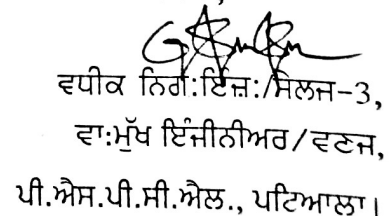 ਵਧੀਕ ਨਿਗ:ਇੰਜ਼:/ਸੇਲਜ-3,
ਵਾ:ਮੁੱਖ ਇੰਜੀਨੀਅਰ/ਵਣਜ,
ਪੀ.ਐਸ.ਪੀ.ਸੀ.ਐਲ., ਪਟਿਆਲਾ।